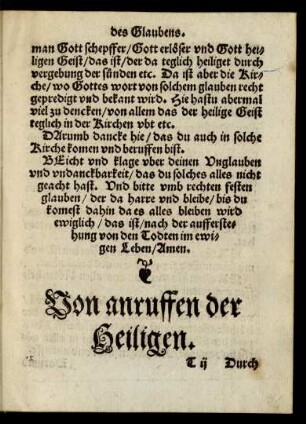 des Glaubens.
man Gott schepffer/Gott erlöser vnd Gott hei-
ligen Geist/das ist/der da teglich heiliget durch
vergebung der sünden etc. Da ist aber die Kir-
che/wo Gottes wort von solchem glauben recht
gepredigt vnd bekant wird. Hie hastu abermal
viel zu dencken/von allem das der heilige Geist
teglich in der Kirchen vbt etc.
DArumb dancke hie/das du auch in solche
Kirche komen vnd beruffen bist.
BEicht vnd klage vber deinen Vnglauben
vnd vndanckbarkeit/das du solches alles nicht
geacht hast. Vnd bitte vmb rechten festen
glauben/der da harre vnd bleibe/bis du
komest dahin da es alles bleiben wird
ewiglich/das ist/nach der aufferste-
hung von den Todten im ewi-
gen Leben/Amen.
Von anruffen der
Heiligen.
T ij Durch